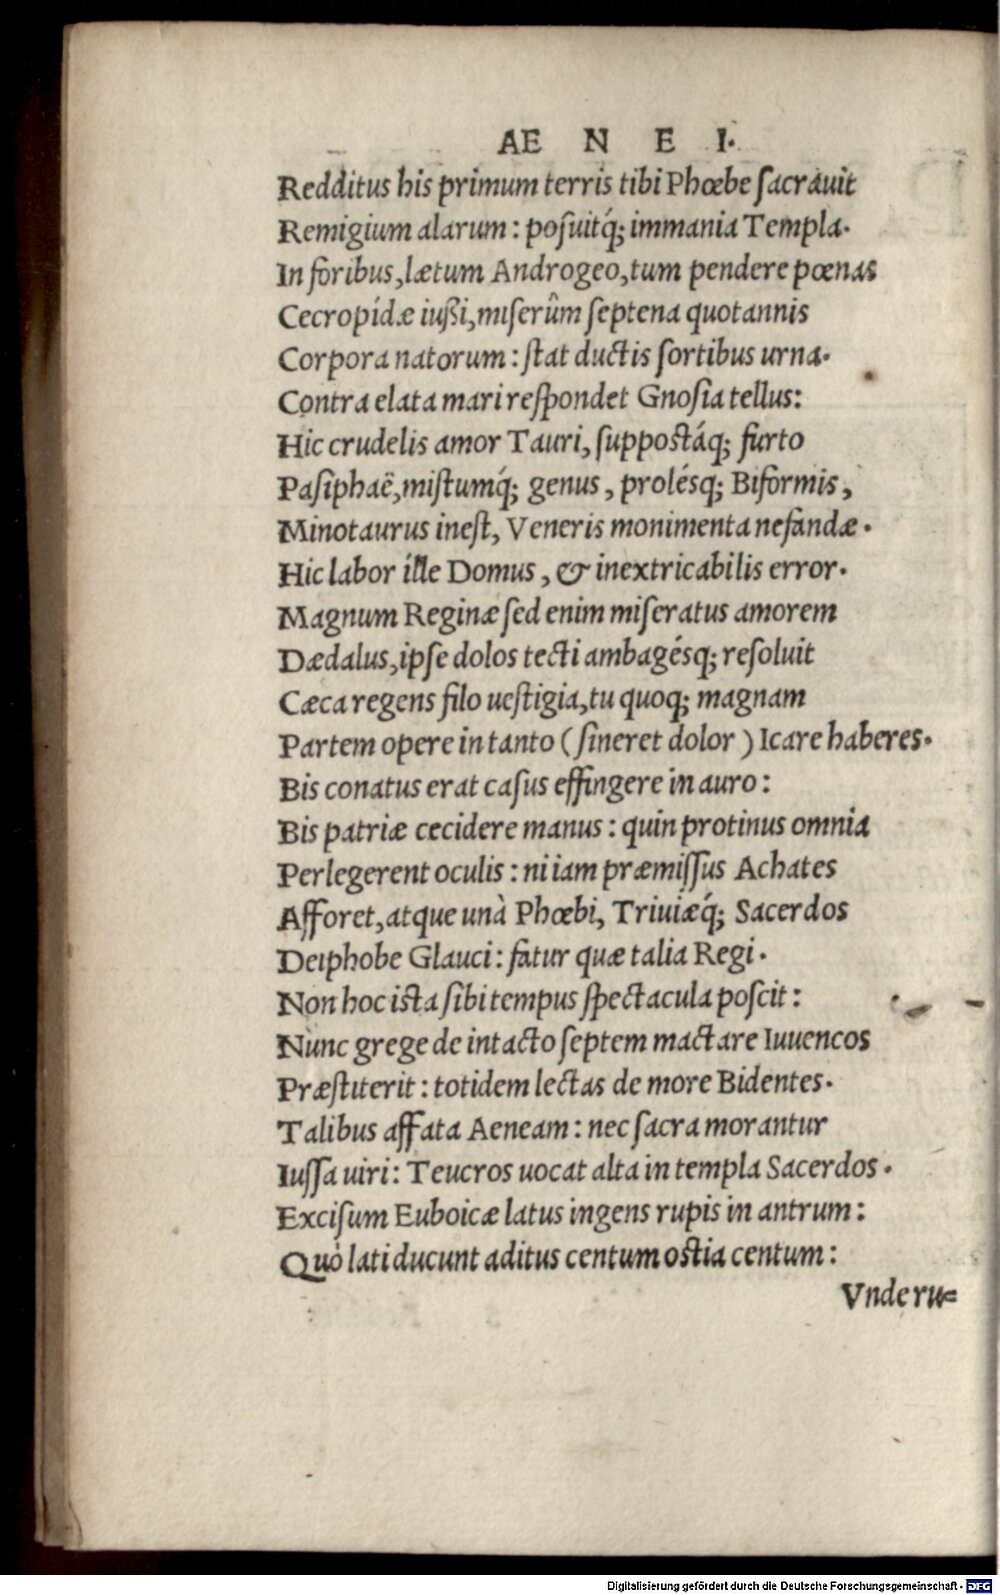 AE N E I.
Redditus his primum terris tibi Phœbe ſacrauit
Remigium alarum : poſuitq́; immania Templa.
In foribus, lætum Androgeo, tum pendere pœnas
Cecropídæ iußi, miſerûm ſeptena quotannis
Corpora natorum : ſtat ductis ſortibus urna.
Contra elata mari reſpondet Gnoſia tellus:
Hic crudelis amor Tauri, ſuppostáq; furto
Paſiphaë, miſtumq́; genus, prolésq; Biformis,
Minotaurus ineſt, Veneris monimenta nefandæ.
Hic labor ille Domus, & inextricabilis error.
Magnum Reginæ ſed enim miſeratus amorem
Dædalus, ipſe dolos tecti ambagésq; reſoluit
Cæca regens filo ueſtigia, tu quoq; magnam
Partem opere in tanto (ſineret dolor) Icare haberes.
Bis conatus erat caſus effingere in auro:
Bis patriæ cecidere manus : quin protinus omnia
Perlegerent oculis : ni iam præmiſſus Achates
Afforet, atque unà Phœbi, Triuiæq́; Sacerdos
Deiphobe Glauci : fatur quæ talia Regi.
Non hoc ista ſibi tempus ſpectacula poſcit:
Nunc grege de intacto ſeptem mactare Iuuencos
Præſtiterit : totidem lectas de more Bidentes.
Talibus affata Aeneam : nec ſacra morantur
Iuſſa uiri : Teucros uocat alta in templa Sacerdos.
Exciſum Euboicæ latus ingens rupis in antrum:
Quò lati ducunt aditus centum ostia centum:
Vnde ru=
Digitalisierung gefördert durch die Deutsche Forschungsgemeinschaft - DFG